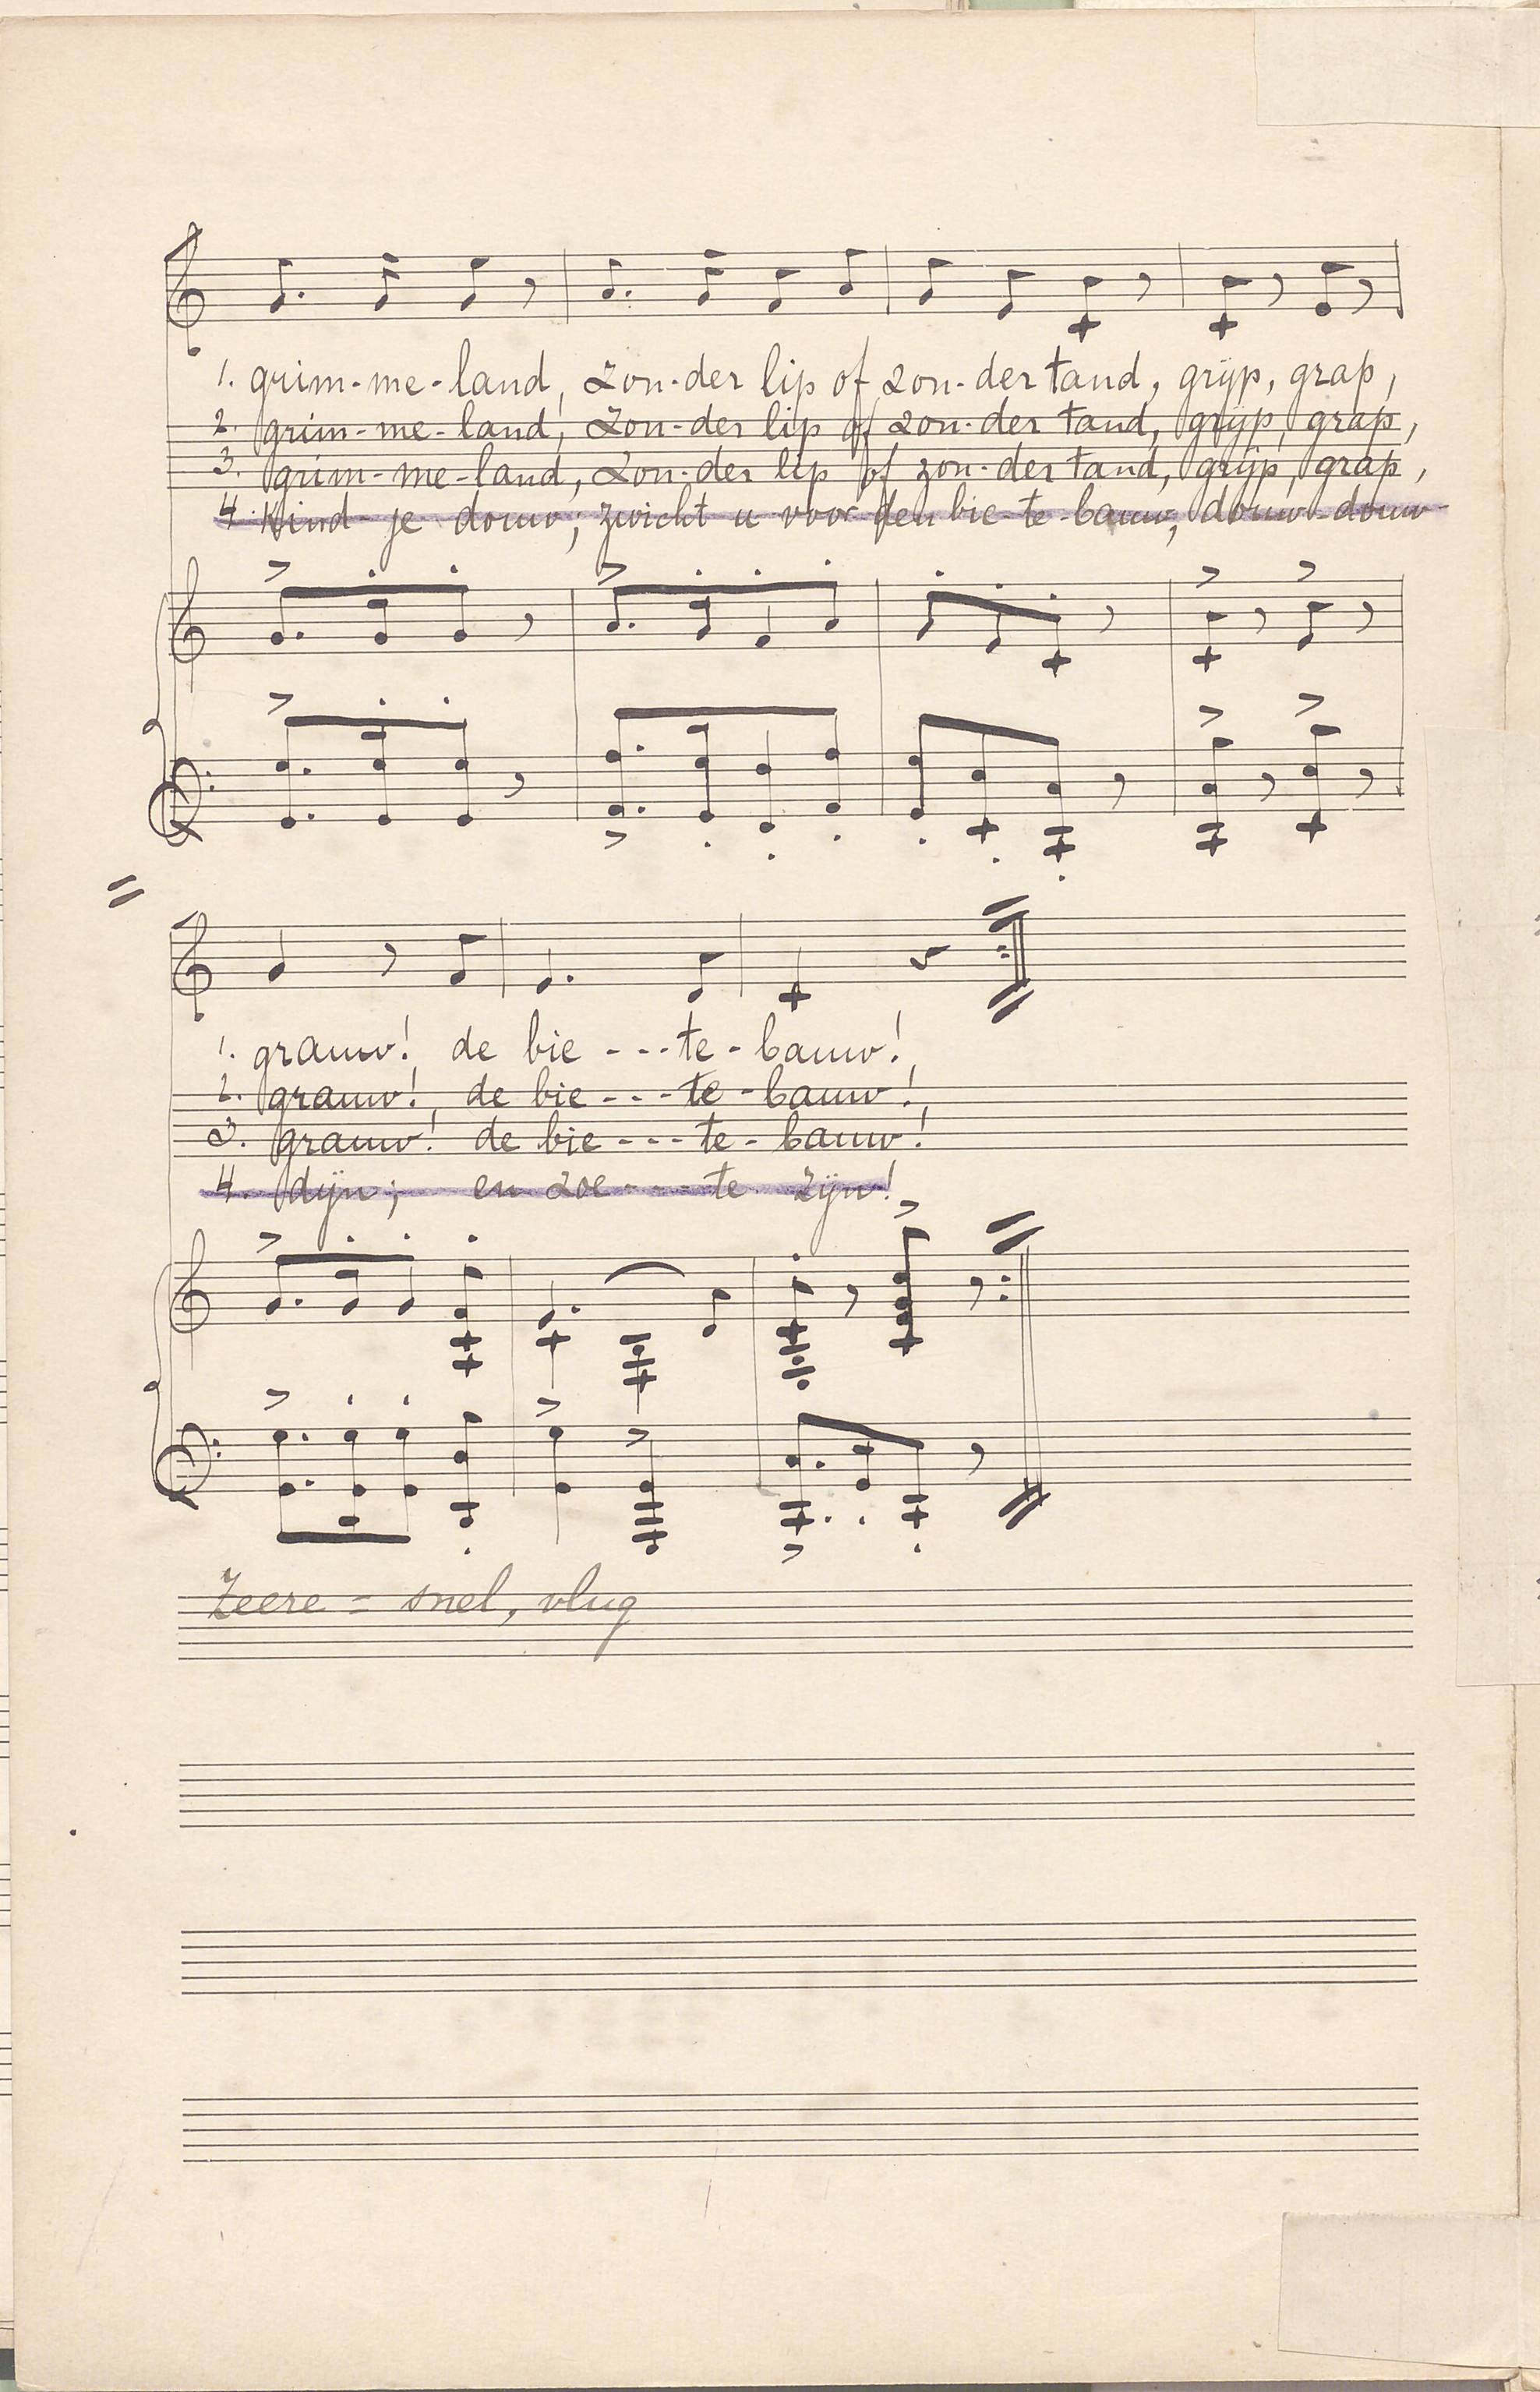 1. grim-me-land, zon-der lip of zon-der tand, grÿp, grap,
2. grim-me-land, zon-der lip of zon-der tand, grÿp, grap,
3. grim-me-land, zon-der lip of zon-der tand, grÿp, grap,
4. Kind-je douw; zwicht u voor den bie-te-bauw, douw-douw-
1. grauw! de bie---te-bauw!
2. grauw! de bie---te-bauw!
3. grauw! de bie---te-bauw!
4. dÿn; en zoe---te zÿn!
Zeere = snel, vlug